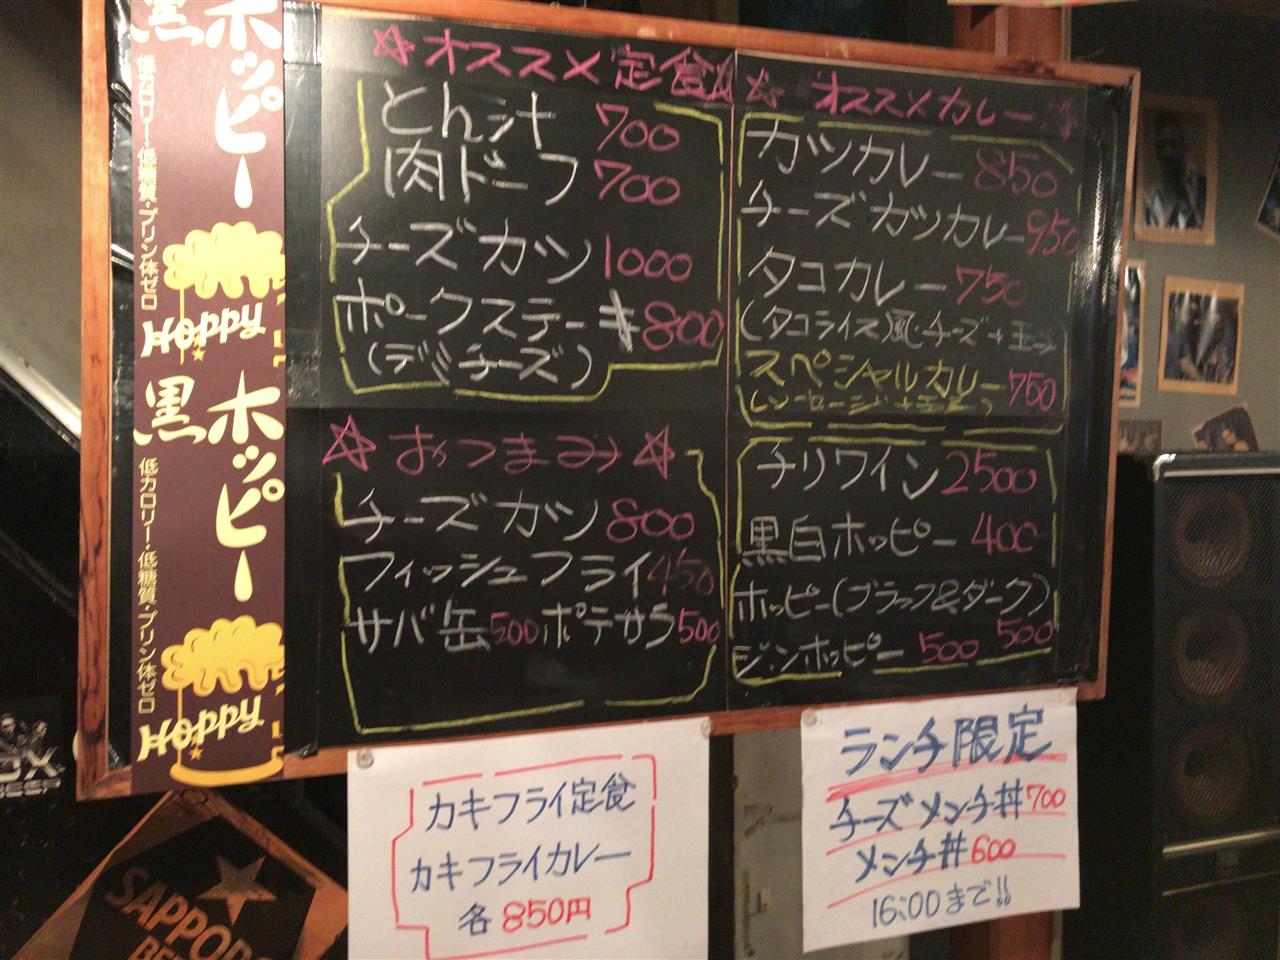 黒ホッピー
低カロリー・低糖質・プリン体ゼロ
Hoppy
黒ホッピー
低カロリー・低糖質・プリン体ゼロ
Hoppy
☆オススメ定食
とん汁 700
肉ドーフ 700
チーズカツ 1000
ポークステーキ 800
(デミチーズ)
☆おつまみ☆
チーズカツ 800
フィッシュフライ 450
サバ缶 500 ポテサラ 500
☆オススメカレー☆
カツカレー 850
チーズカツカレー 950
タコカレー 750
(タコライス風・チーズ+玉子)
スペシャルカレー 750
チリワイン 2500
黒白ホッピー 400
ホッピー(ブラック&ダーク) 500
ジンホッピー 500
カキフライ定食
カキフライカレー
各 850円
ランチ限定
チーズメンチ丼 700
メンチ丼 600
16:00まで!!
SAPPORO
BEER